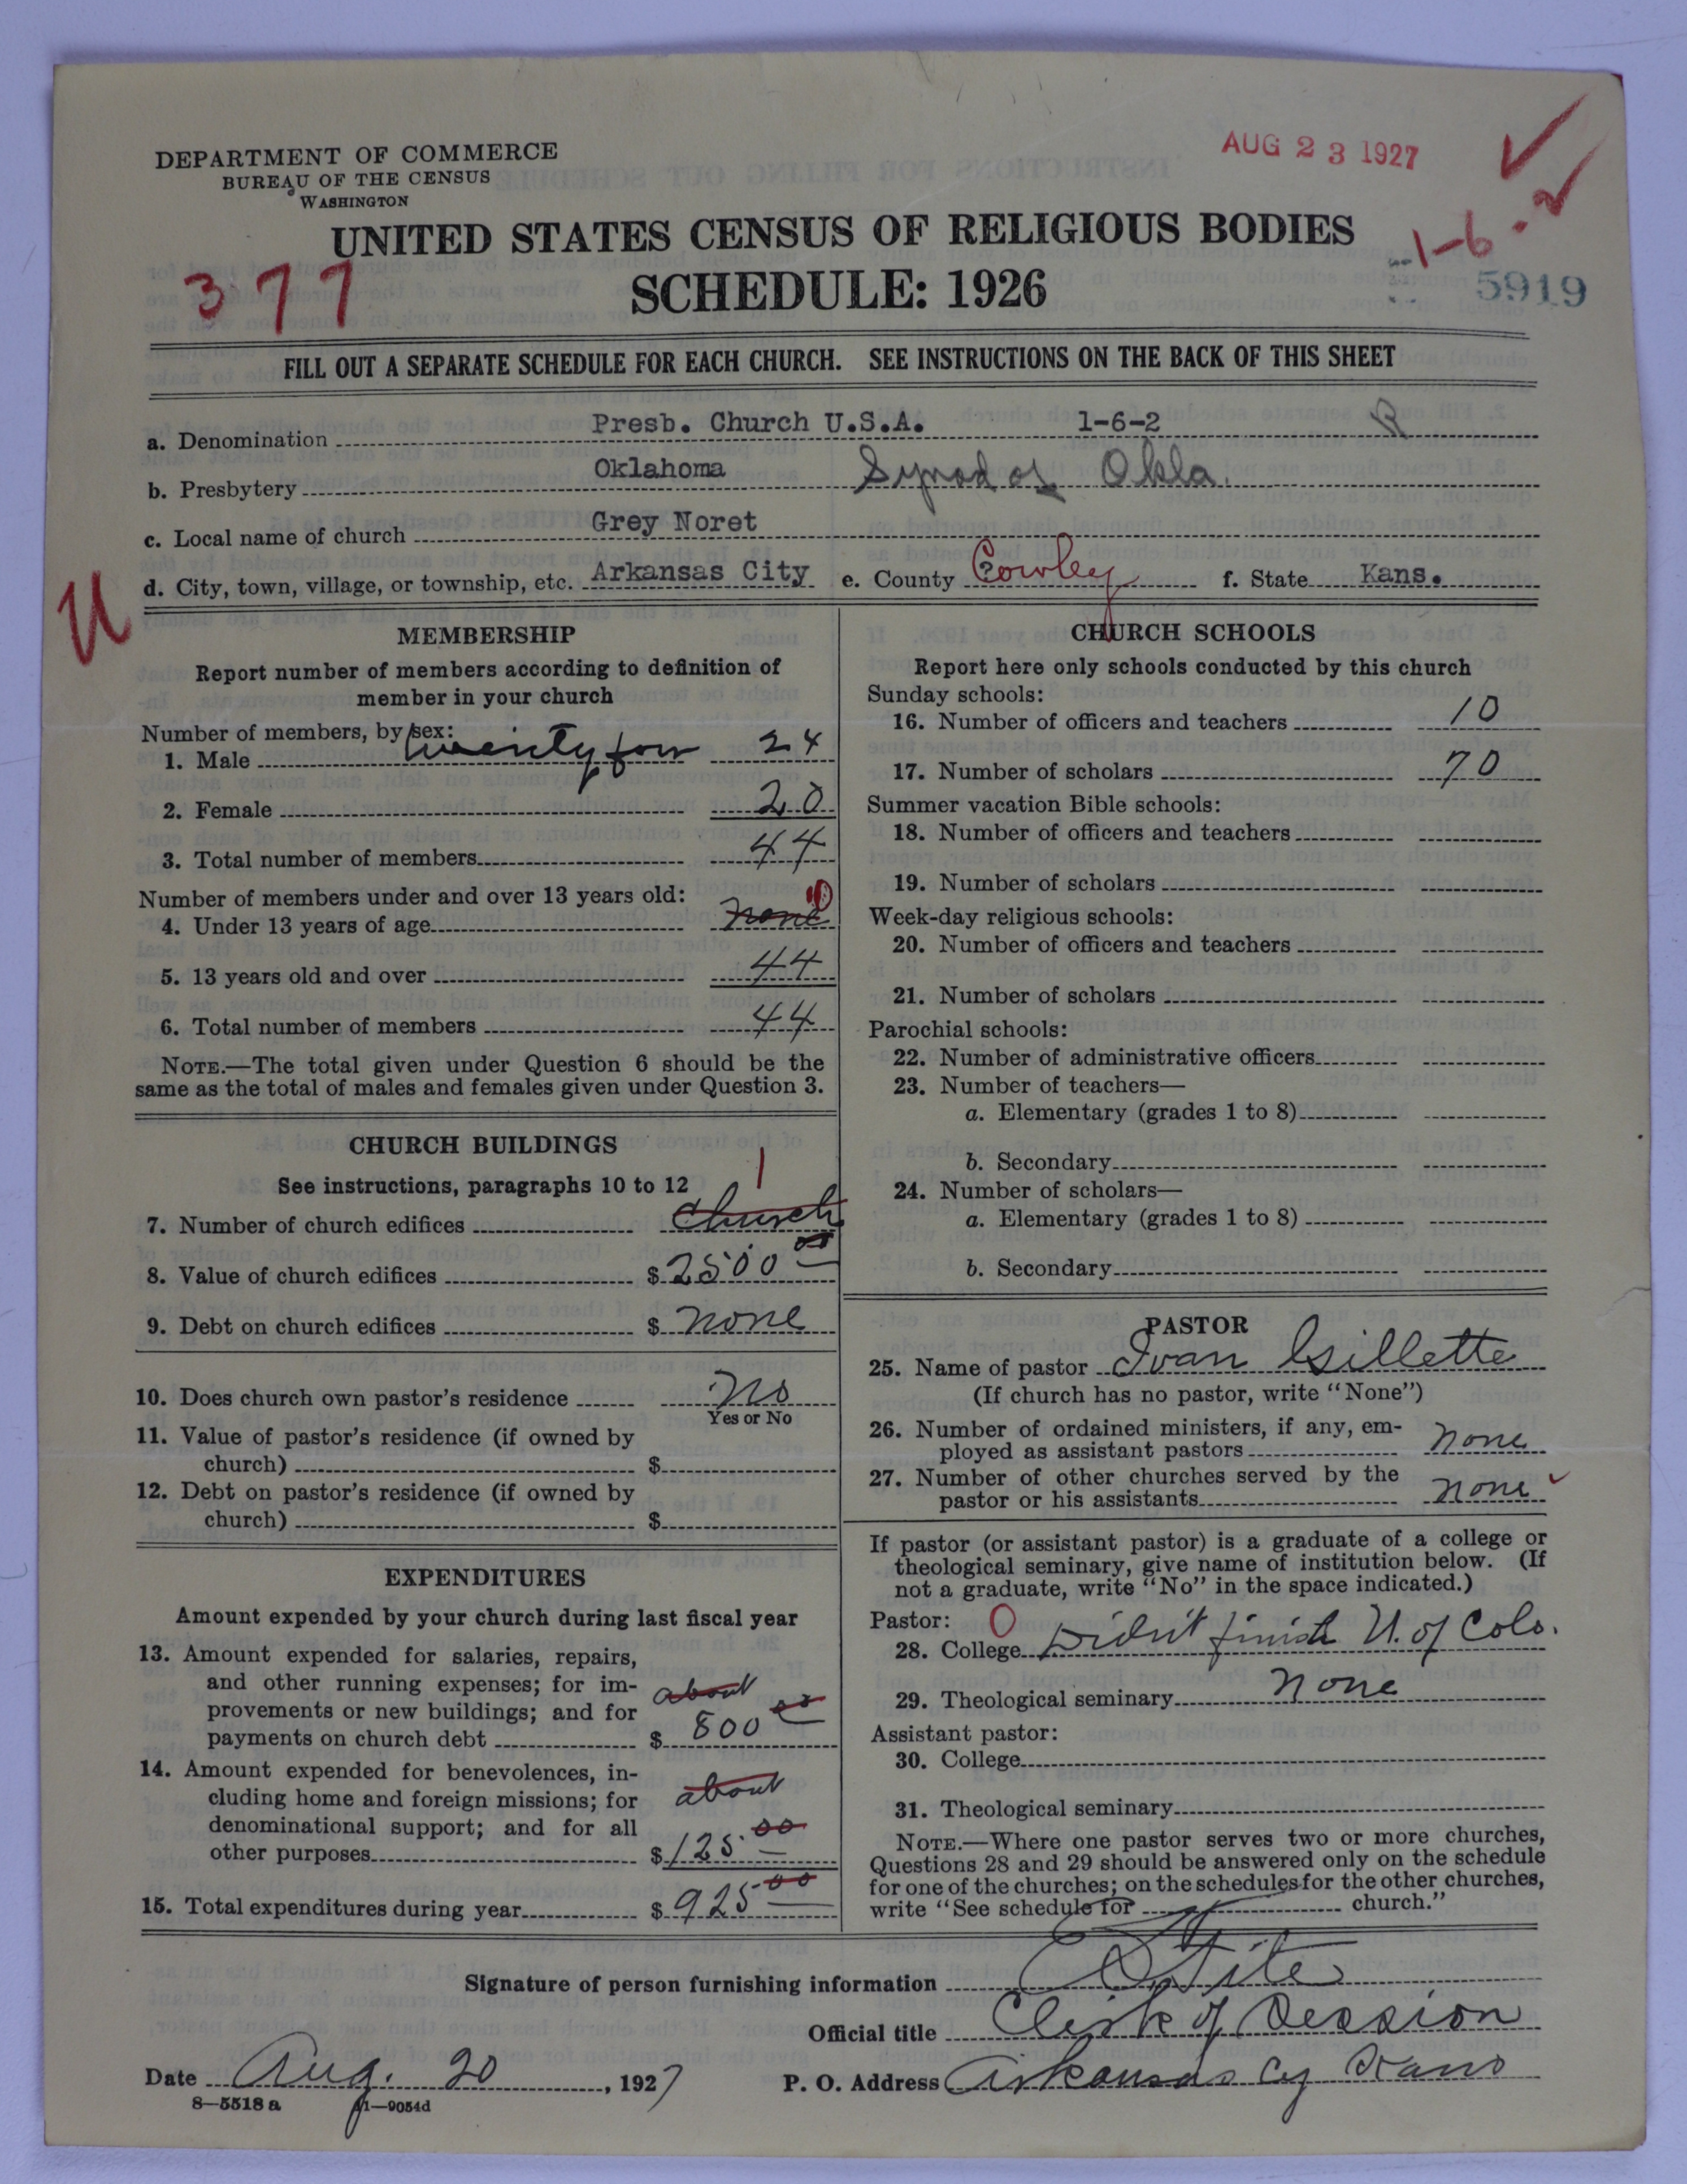 AUG 23 1927
DEPARTMENT OF COMMERCE
BUREAU OF THE CENSUS
WASHINGTON
UNITED STATES CENSUS OF RELIGIOUS BODIES
1-6-2
377
SCHEDULE: 1926
5919
FILL OUT A SEPARATE SCHEDULE FOR EACH CHURCH. SEE INSTRUCTIONS ON THE BACK OF THIS SHEET
a. Denomination Presb. Church U.S.A. 1-6-2
b. Presbytery Oklahoma Synod of Okla.
c. Local name of church Grey Noret
d. City, town, village, or township, etc. Arkansas City e. County Cowley f. State Kans.
U
MEMBERSHIP
Report number of members according to definition of
member in your church
Number of members, by sex:
1. Male twenty four 24
2. Female 20
3. Total number of members 44
Number of members under and over 13 years old:
4. Under 13 years of age none 0
5. 13 years old and over 44
6. Total number of members 44
NOTE.—The total given under Question 6 should be the
same as the total of males and females given under Question 3.
CHURCH BUILDINGS
See instructions, paragraphs 10 to 12
1
7. Number of church edifices church
8. Value of church edifices $ 2500 00
9. Debt on church edifices $ none
10. Does church own pastor's residence no
Yes or No
11. Value of pastor's residence (if owned by
church) $
12. Debt on pastor's residence (if owned by
church) $
EXPENDITURES
Amount expended by your church during last fiscal year
13. Amount expended for salaries, repairs,
and other running expenses; for im-
about
provements or new buildings; and for
payments on church debt $ 800 00
14. Amount expended for benevolences, in-
cluding home and foreign missions; for
about
denominational support; and for all
other purposes $ 125 00
15. Total expenditures during year $ 925 00
CHURCH SCHOOLS
Report here only schools conducted by this church
Sunday schools:
16. Number of officers and teachers 10
17. Number of scholars 70
Summer vacation Bible schools:
18. Number of officers and teachers
19. Number of scholars
Week-day religious schools:
20. Number of officers and teachers
21. Number of scholars
Parochial schools:
22. Number of administrative officers
23. Number of teachers—
a. Elementary (grades 1 to 8)
b. Secondary
24. Number of scholars—
a. Elementary (grades 1 to 8)
b. Secondary
PASTOR
25. Name of pastor Ivan Gillette
(If church has no pastor, write "None")
26. Number of ordained ministers, if any, em-
ployed as assistant pastors none
27. Number of other churches served by the
pastor or his assistants none
If pastor (or assistant pastor) is a graduate of a college or
theological seminary, give name of institution below. (If
not a graduate, write "No" in the space indicated.)
Pastor: 0
28. College Didn't finish U. of Colo.
29. Theological seminary none
Assistant pastor:
30. College
31. Theological seminary
NOTE.—Where one pastor serves two or more churches,
Questions 28 and 29 should be answered only on the schedule
for one of the churches; on the schedules for the other churches,
write "See schedule for church."
Signature of person furnishing information
Official title Clerk of Session
Date Aug. 20, 1927 P. O. Address Arkansas Cy Kans
8—5518 a 11—9054d